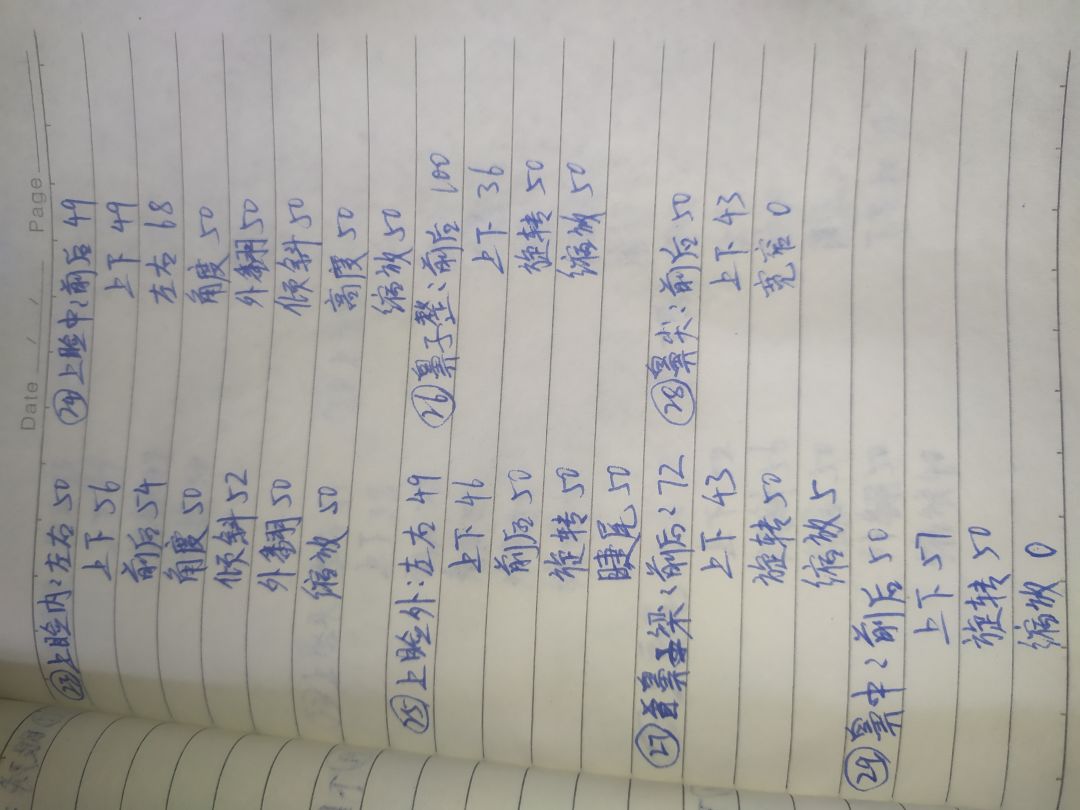 Date / / Page
㉓上睑内：左右 50
上下 56
前后 54
角度 50
倾斜 52
外翻 50
缩放 50
㉔上睑中：前后 49
上下 49
左右 68
角度 50
外翻 50
倾斜 50
高度 50
缩放 50
㉕上睑外：左右 49
上下 46
前后 50
旋转 50
睫尾 50
㉖鼻子整：前后 100
上下 36
旋转 50
缩放 50
㉗鼻梁：前后 72
上下 43
旋转 50
缩放 5
㉘鼻尖：前后 50
上下 43
宽窄 0
㉙鼻中：前后 50
上下 57
旋转 50
缩放 0